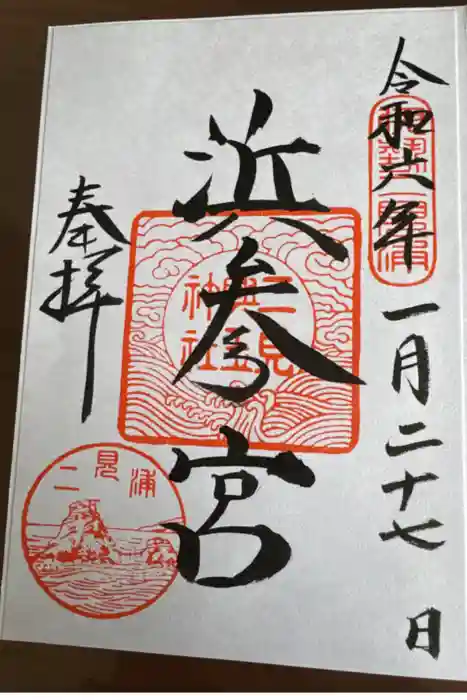 令和六年一月二十七日
浜参宮
二見
興玉
神社
奉拝
二見浦